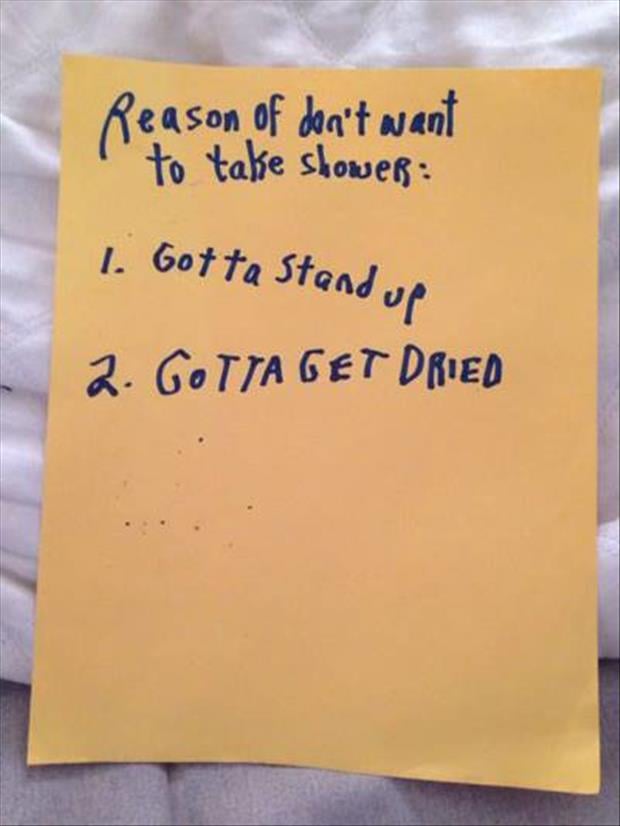 Reason of don't want
to take shower:
1. Gotta Stand up
2. GOTTA GET DRIED